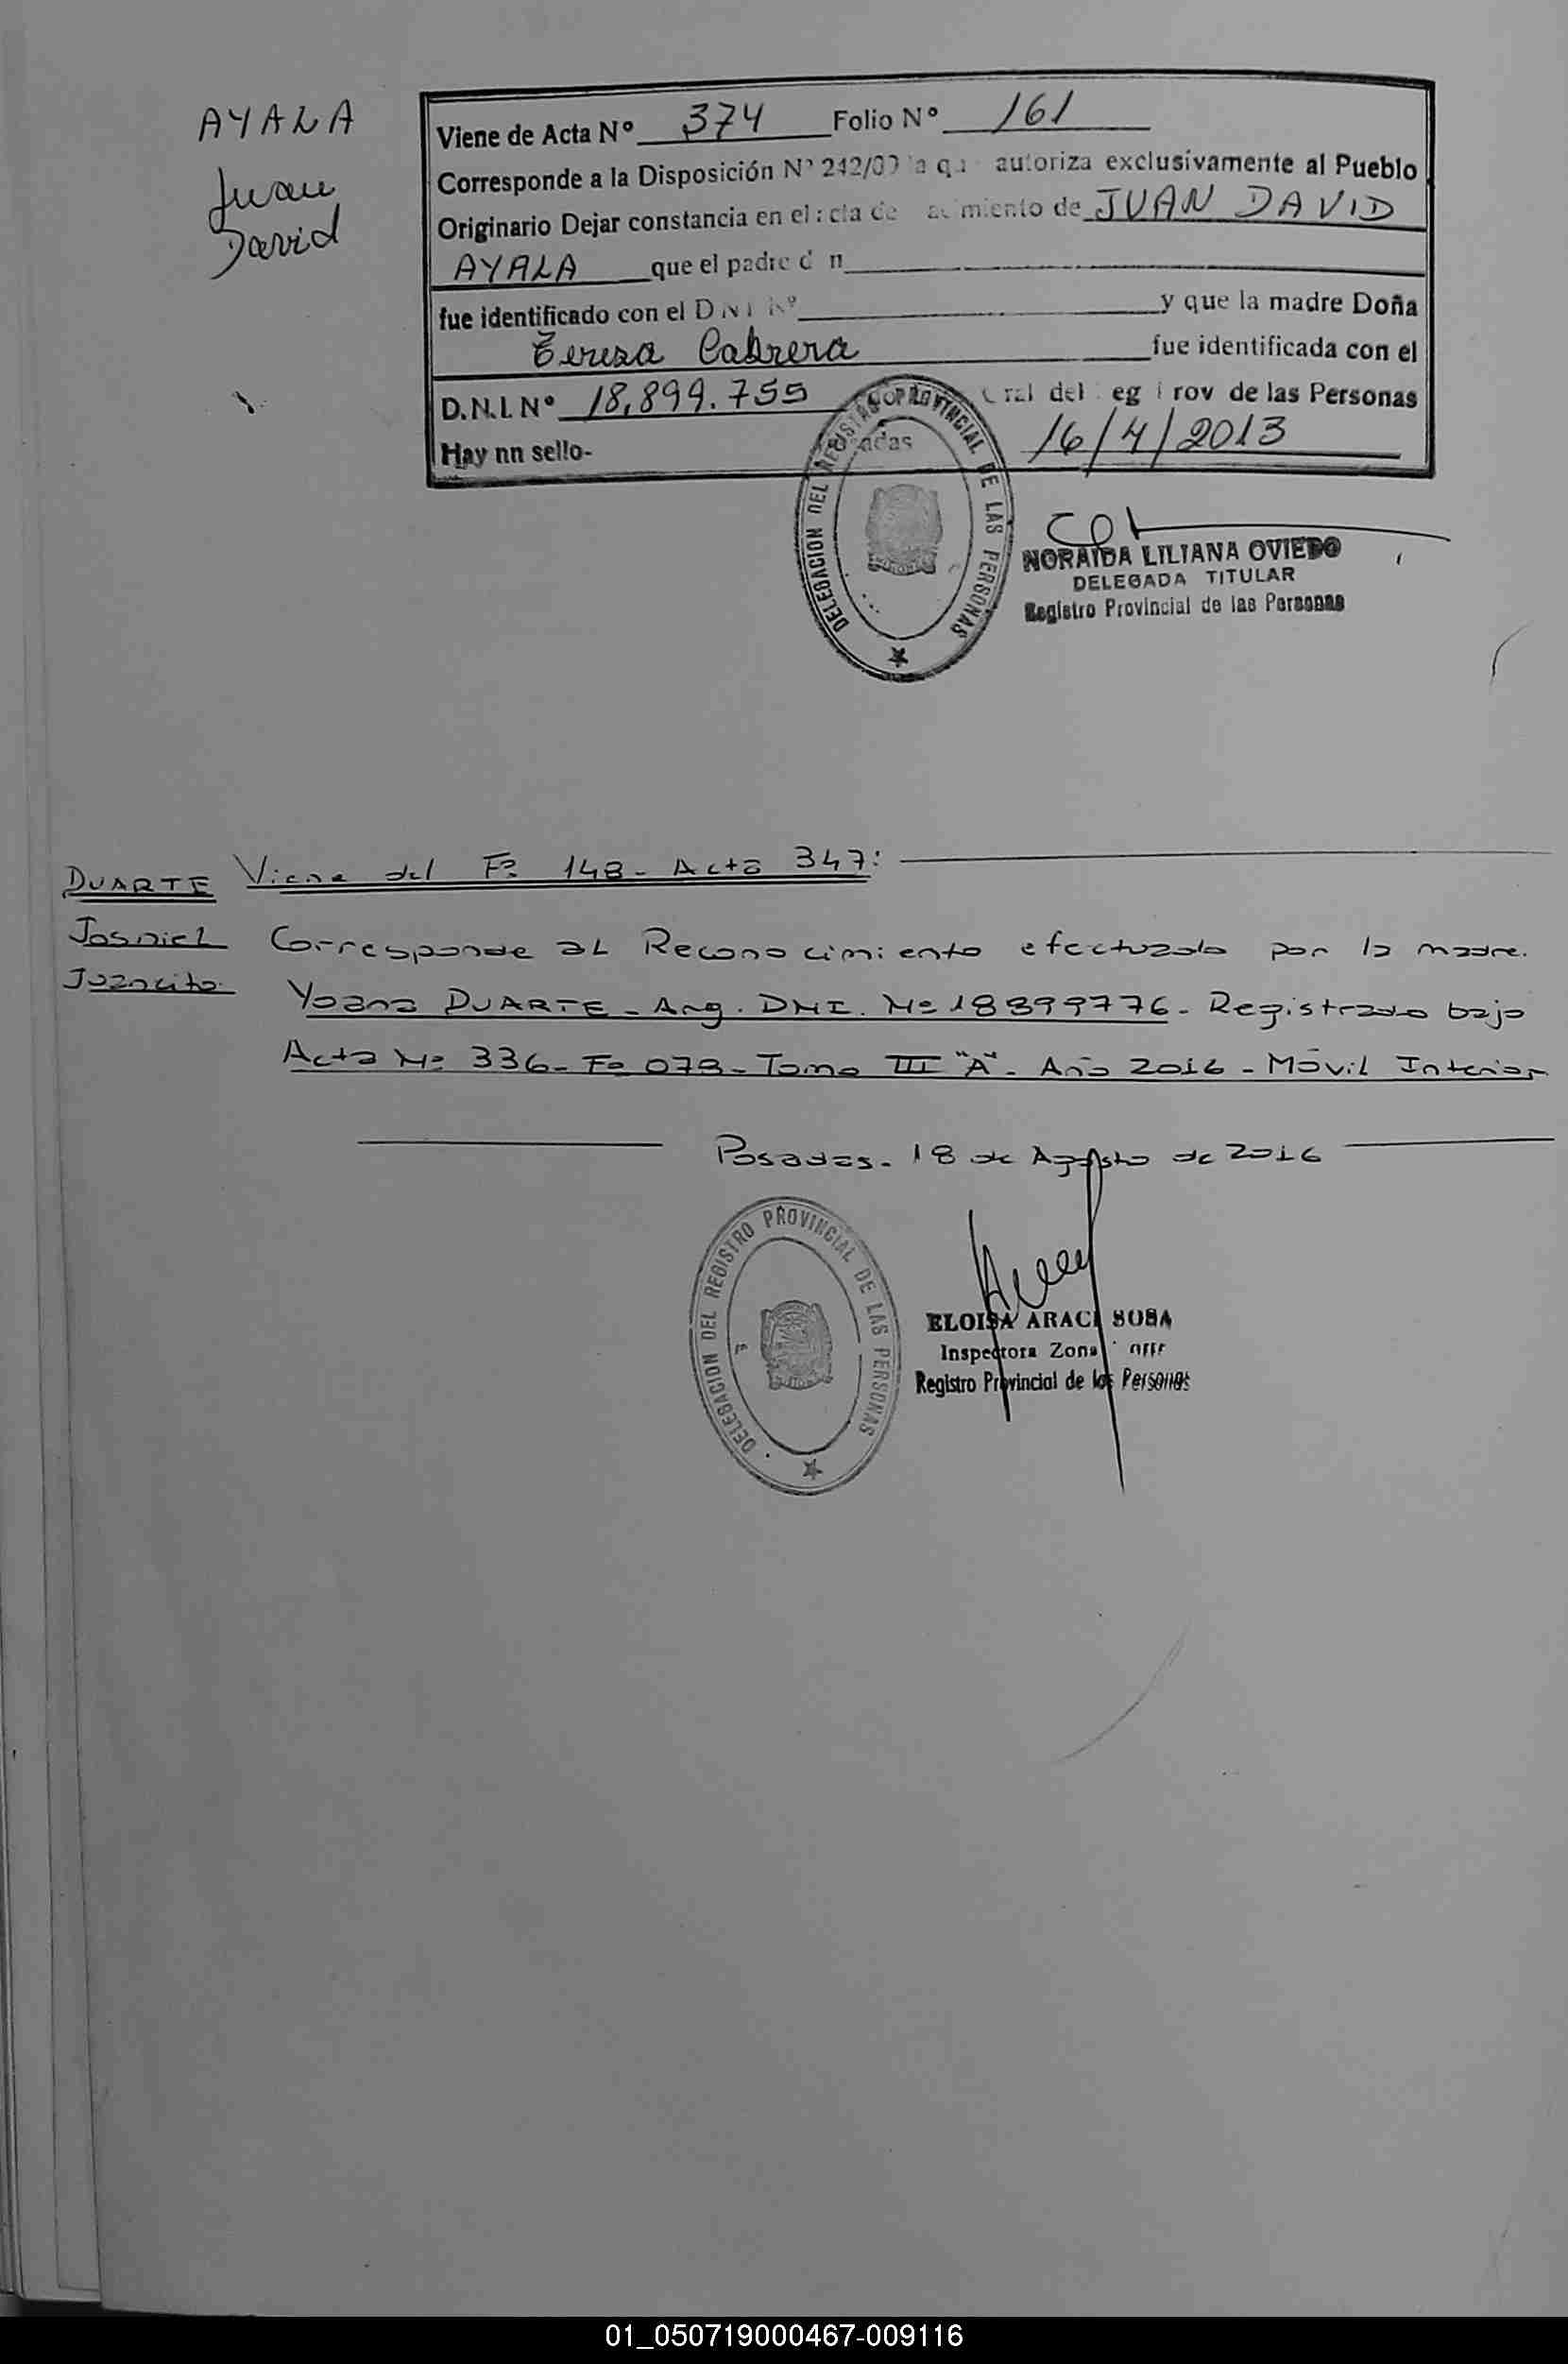 AYALA
Juan
David
Viene de Acta Nº 374 Folio Nº 161
Corresponde a la Disposición Nº 242/0 autoriza exclusivamente al Pueblo
Originario Dejar constancia en el de JUAN DAVID
AYALA que el padre
fue identificado con el D.N.I. Nº y que la madre Doña
Teresa Cabrera fue identificada con el
D.N.I. Nº 18,899.755 del de las Personas
Hay nn sello- 16/4/2013
DELEGACION DEL REGISTRO PROVINCIAL DE LAS PERSONAS
NORAIDA LILIANA OVIEDO
DELEGADA TITULAR
Registro Provincial de las Personas
DUARTE
Josniel
Juancito
Viene del Fº 148 - Acta 347:
Corresponde al Reconocimiento efectuado por la madre.
Yoana DUARTE - Arg. DNI. Nº 18899776 - Registrado bajo
Acta Nº 336 - Fº 078 - Tomo III "A" - Año 2016 - Móvil Interior
Posadas - 18 de Agosto de 2016
DELEGACION DEL REGISTRO PROVINCIAL DE LAS PERSONAS
ELOISA ARACI SOSA
Inspectora Zona
Registro Provincial de los Personas
01_050719000467-009116